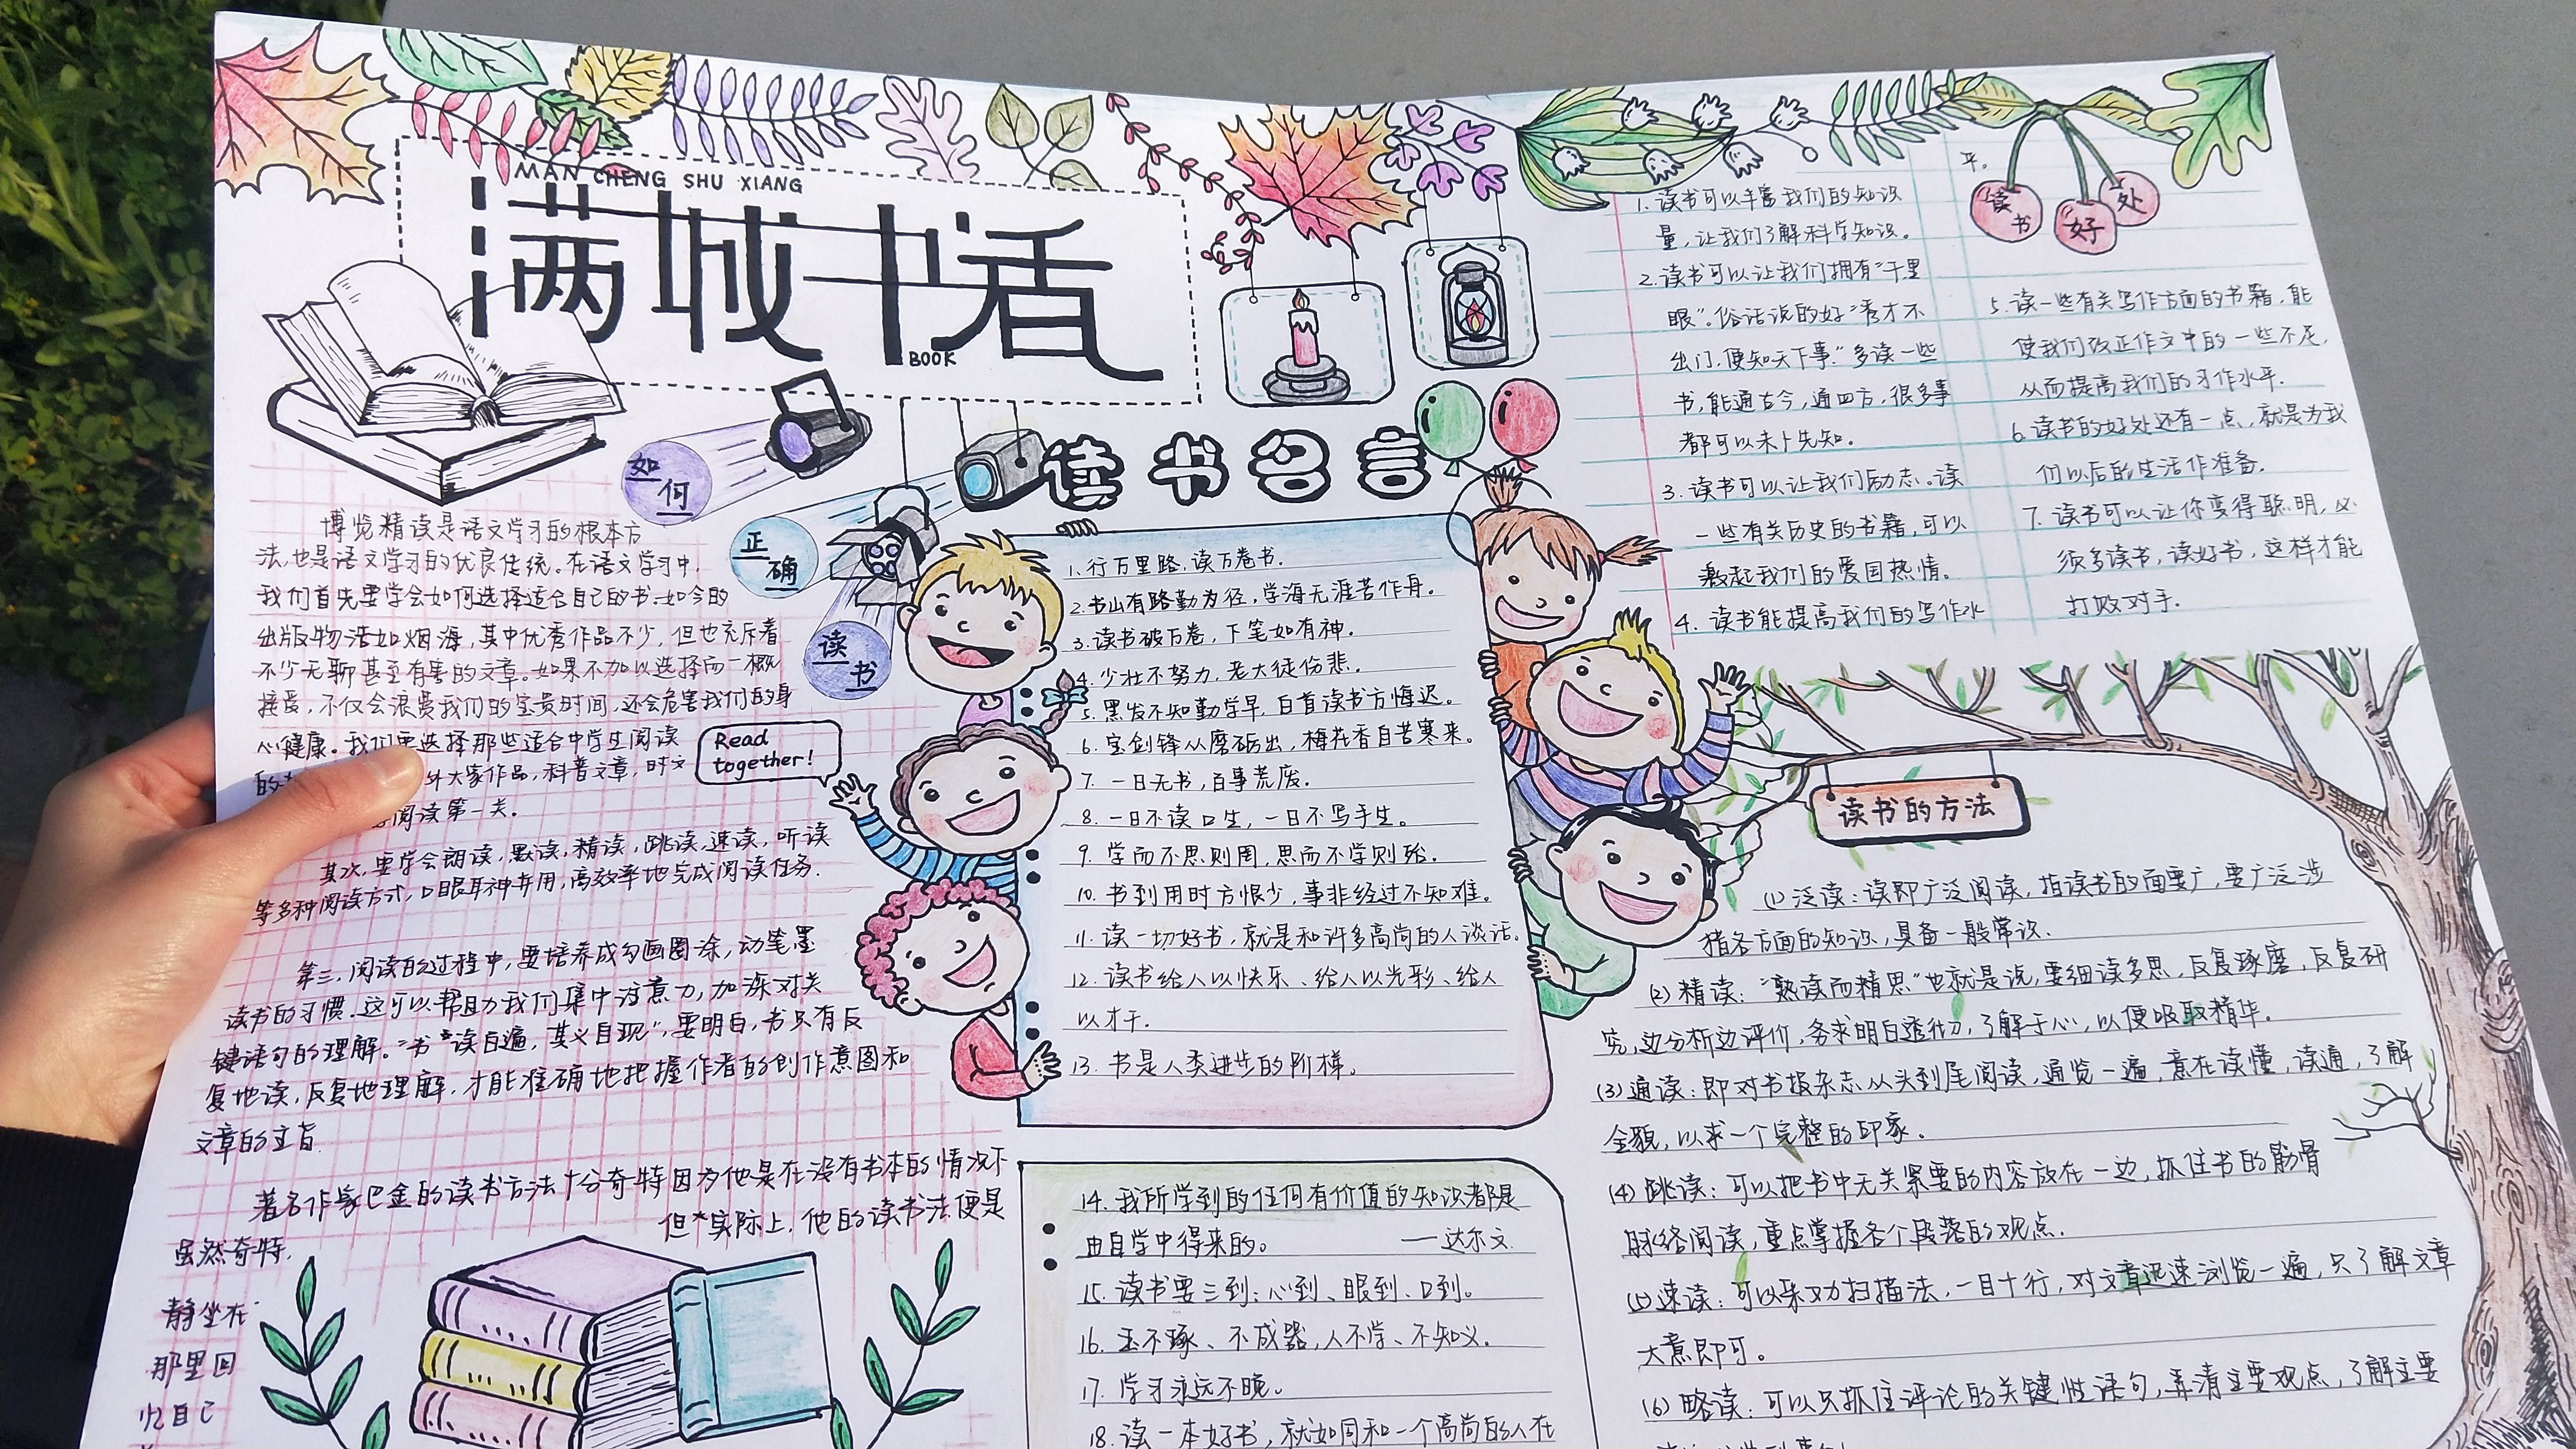 MAN CHENG SHU XIANG
满城书香
BOOK
如何
正确
读书
博览精读是语文学习的根本方
法,也是语文学习的优良传统。在语文学习中,
我们首先要学会如何选择适合自己的书.如今的
出版物浩如烟海,其中优秀作品不少,但也充斥着
不少无聊甚至有害的文章。如果不加以选择而一概
接受,不仅会浪费我们的宝贵时间,还会危害我们的身
心健康。我们要选择那些适合中学生阅读
的
外大家作品,科普文章,时文
阅读第一关.
其次,要学会朗读,默读,精读,跳读,速读,听读
等多种阅读方式,口眼耳神并用,高效率地完成阅读任务.
第三,阅读的过程中,要培养成勾画圈涂,动笔墨
读书的习惯.这可以帮助我们集中注意力,加深对关
键语句的理解。"书读百遍,其义自现",要明白,书只有反
复地读,反复地理解,才能准确地把握作者的创作意图和
文章的主旨
著名作家巴金的读书方法十分奇特因为他是在没有书本的情况下
但实际上,他的读书法便是
虽然奇特,
静坐在
那里回
忆自己
Read
together!
读书名言
1.行万里路,读万卷书.
2.书山有路勤为径,学海无涯苦作舟.
3.读书破万卷,下笔如有神.
4.少壮不努力,老大徒伤悲.
5.黑发不知勤学早,白首读书方悔迟。
6.宝剑锋从磨砺出,梅花香自苦寒来。
7.一日无书,百事荒废.
8.一日不读口生,一日不写手生。
9.学而不思则罔,思而不学则殆.
10.书到用时方恨少,事非经过不知难。
11.读一切好书,就是和许多高尚的人谈话.
12.读书给人以快乐、给人以光彩、给人
以才干.
13.书是人类进步的阶梯。
14.我所学到的任何有价值的知识都是
由自学中得来的。 —达尔文.
15.读书要三到:心到、眼到、口到。
16.玉不琢、不成器,人不学、不知义.
17.学习永远不晚。
18.读一本好书,就如同和一个高尚的人在
读书好处
1.读书可以丰富我们的知识
量,让我们了解科学知识。
2.读书可以让我们拥有"千里
眼"。俗话说的好"秀才不
出门,便知天下事."多读一些
书,能通古今,通四方,很多事
都可以未卜先知.
3.读书可以让我们励志.读
一些有关历史的书籍,可以
激起我们的爱国热情。
4.读书能提高我们的写作水
平。
5.读一些有关写作方面的书籍,能
使我们改正作文中的一些不足,
从而提高我们的习作水平.
6.读书的好处还有一点,就是为我
们以后的生活作准备.
7.读书可以让你变得聪明,必
须多读书,读好书,这样才能
打败对手.
读书的方法
(1)泛读:读即广泛阅读,指读书的面要广,要广泛涉
猎各方面的知识,具备一般常识.
(2)精读:"熟读而精思"也就是说,要细读多思,反复琢磨,反复研
究,边分析边评价,务求明白透彻,了解于心,以便吸取精华.
(3)通读:即对书报杂志从头到尾阅读,通览一遍,意在读懂,读通,了解
全貌,以求一个完整的印象.
(4)跳读:可以把书中无关紧要的内容放在一边,抓住书的筋骨
脉络阅读,重点掌握各个段落的观点.
(5)速读:可以采功扫描法,一目十行,对文章迅速浏览一遍,只了解文章
大意即可。
(6)略读:可以只抓住评论的关键性语句,弄清主要观点,了解主要